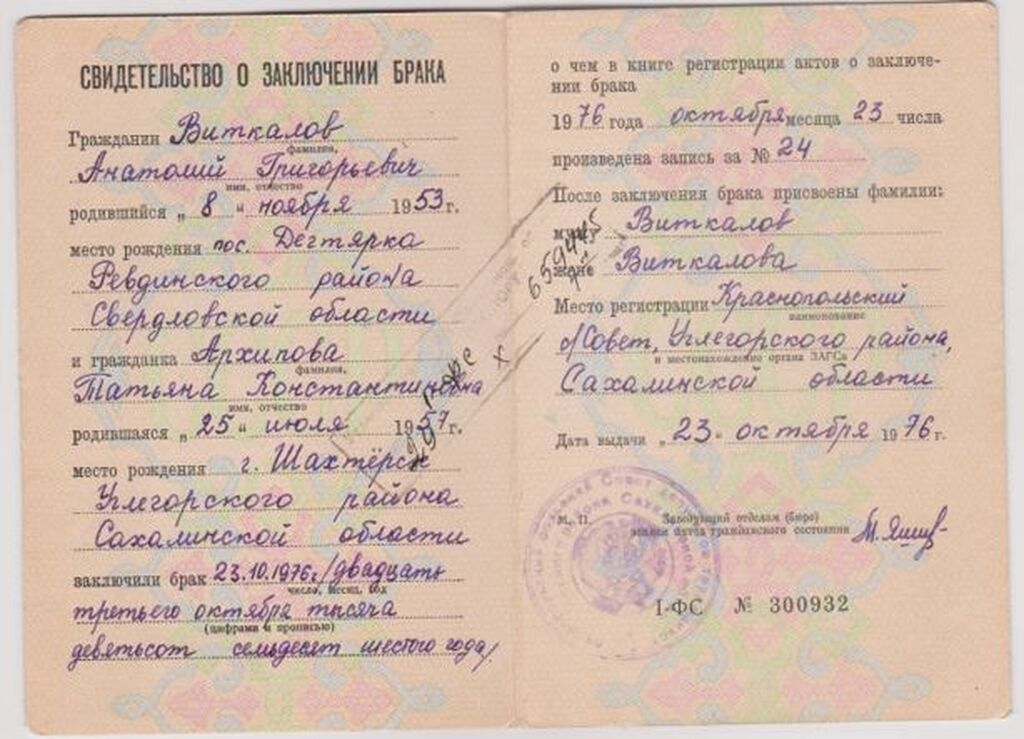 СВИДЕТЕЛЬСТВО О ЗАКЛЮЧЕНИИ БРАКА
Гражданин Виткалов
фамилия,
Анатолий Григорьевич
имя, отчество
родившийся „ 8 “ ноября 1953 г.
место рождения пос. Дегтярка
Ревдинского района
Свердловской области
и гражданка Архипова
фамилия,
Татьяна Константиновна
имя, отчество
родившаяся „ 25 “ июля 1957 г.
место рождения г. Шахтёрск
Углегорского района
Сахалинской области
заключили брак 23.10.1976г. /двадцать
число, месяц, год
третьего октября тысяча
(цифрами и прописью)
девятьсот семьдесят шестого года/
о чем в книге регистрации актов о заключе-
нии брака
1976 года октября месяца 23 числа
произведена запись за № 24
После заключения брака присвоены фамилии:
мужу Виткалов
жене Виткалова
Место регистрации Краснопольский
наименование
с/Совет, Углегорского района,
и местонахождение органа ЗАГСа
Сахалинской области
Дата выдачи „ 23 “ октября 1976 г.
М. П. Заведующий отделом (бюро)
записи актов гражданского состояния
I-ФС № 300932